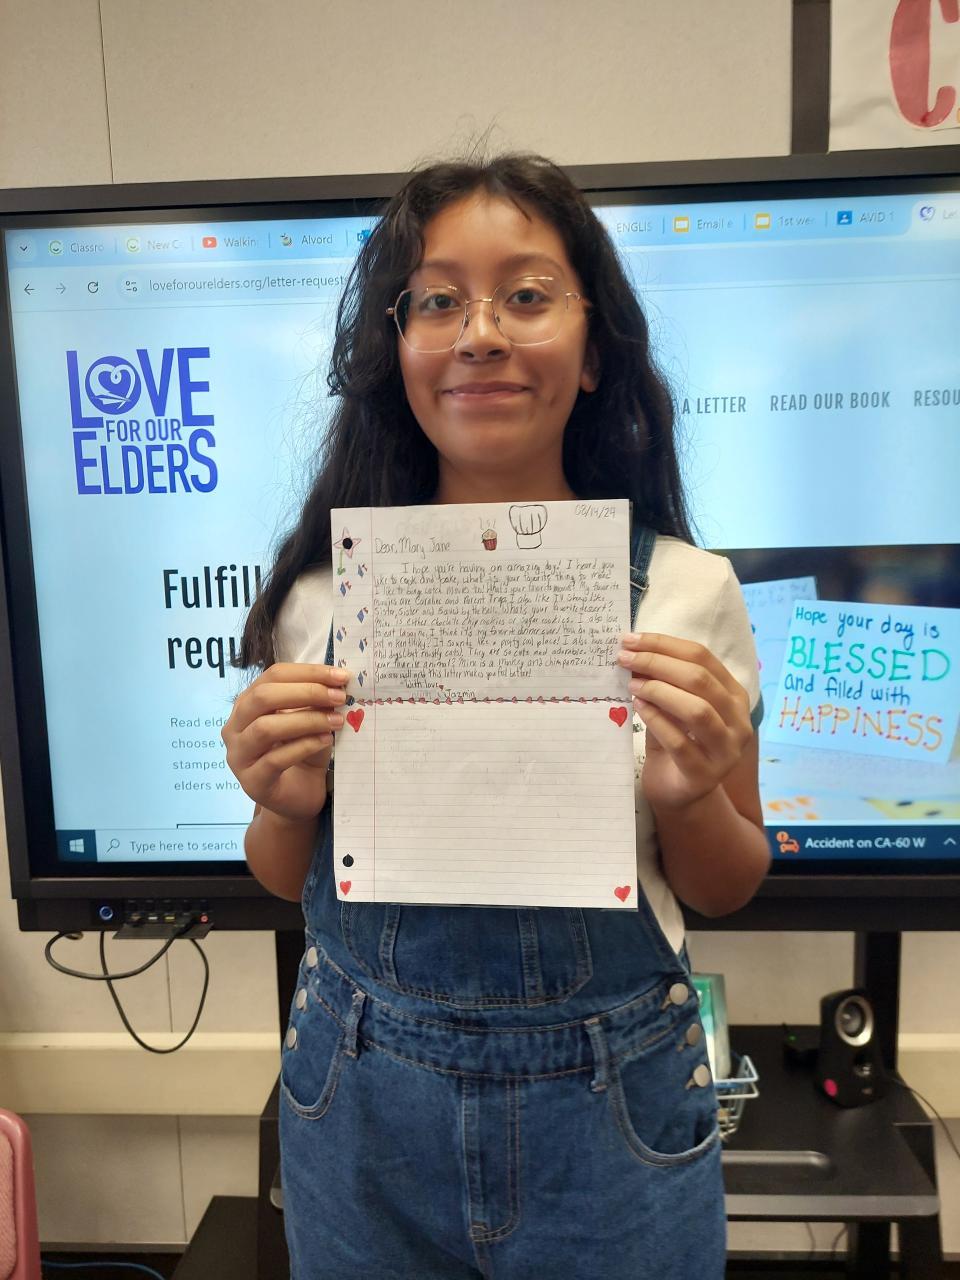 C
Classro
New C
Walkin
Alvord
ENGLIS
Email e
1st we
AVID 1
Le
loveforourelders.org/letter-requests
LOVE
FOR OUR
ELDERS
A LETTER READ OUR BOOK RESOU
Fulfill
requ
Read elde
choose w
stamped
elders who
08/14/24
Dear, Mary Jane
I hope you're having an amazing day! I heard you
like to cook and bake, what is your favorite thing to make?
I like to binge movies to! What's your favorite movie? My favorite
movies are Coraline and Parent Trap. I also like TV Shows like
Sister, Sister and Saved by the Bell. What's your favorite dessert?
Mine is either chocolate chip cookies or sugar cookies. I also love
to eat lasagna, I think it's my favorite dinner ever! How do you like it
out in Kentucky? It sounds like a pretty cool place! I also love cats
and dogs (but mostly cats). They are so cute and adorable. What's
your favorite animal? Mine is a monkey and chimpanzees! I hope
you are well and this letter makes you feel better!
-With love,
Jazmin
Hope your day is
BLESSED
and filled with
HAPPINESS
Type here to search
Accident on CA-60 W